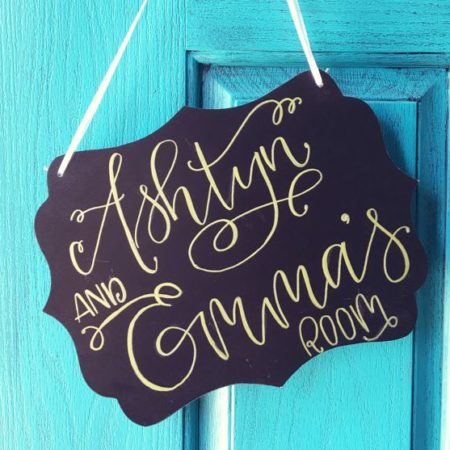 Ashtyn
AND
Emma's
ROOM